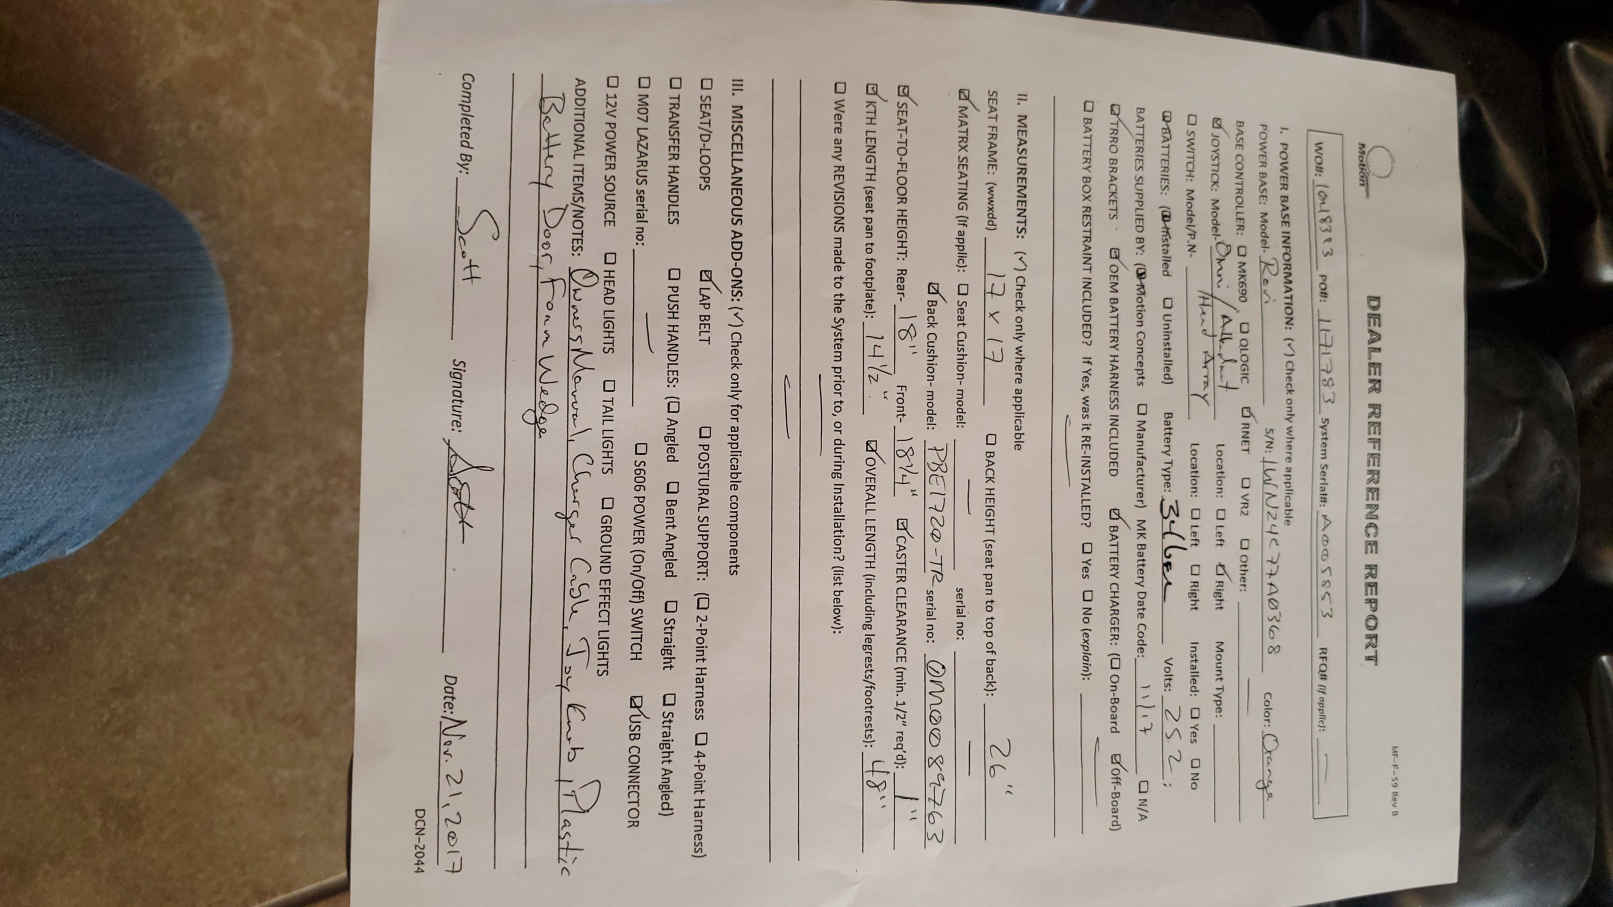 MF-F-59 Rev B
Motion
DEALER REFERENCE REPORT
WO#: 1048323 PO#: 1171783 System Serial#: A0005853 RFQ# (if applic):
I. POWER BASE INFORMATION: (✓) Check only where applicable
POWER BASE: Model- Rovi S/N: 1WN24C77A0368 Color: Orange
BASE CONTROLLER: ☐ MK690 ☐ QLOGIC ☑ RNET ☐ VR2 ☐ Other:
☑ JOYSTICK: Model- Omni / Location: ☐ Left ☑ Right Mount Type:
☐ SWITCH: Model/P.N- /Head Array Location: ☐ Left ☐ Right Installed: ☐ Yes ☐ No
☑ BATTERIES: (☑ Installed ☐ Uninstalled) Battery Type: Volts: 25.2
BATTERIES SUPPLIED BY: (☑ Motion Concepts ☐ Manufacturer) MK Battery Date Code: 11/17 ☐ N/A
☑ TRRO BRACKETS ☑ OEM BATTERY HARNESS INCLUDED ☑ BATTERY CHARGER: (☐ On-Board ☑ Off-Board)
☐ BATTERY BOX RESTRAINT INCLUDED? If Yes, was it RE-INSTALLED? ☐ Yes ☐ No (explain):
II. MEASUREMENTS: (✓) Check only where applicable
SEAT FRAME: (wwxdd) 17 x 17 ☐ BACK HEIGHT (seat pan to top of back): 26"
☑ MATRX SEATING (If applic): ☐ Seat Cushion- model: serial no:
☑ Back Cushion- model: PBE1720-TR serial no: OM00089763
☑ SEAT-TO-FLOOR HEIGHT: Rear- 18" Front- 18 1/4" ☑ CASTER CLEARANCE (min. 1/2" req'd): 1"
☑ KTH LENGTH (seat pan to footplate): 14 1/2" ☑ OVERALL LENGTH (including legrests/footrests): 48"
☐ Were any REVISIONS made to the System prior to, or during Installation? (list below):
III. MISCELLANEOUS ADD-ONS: (✓) Check only for applicable components
☐ SEAT/D-LOOPS ☑ LAP BELT ☐ POSTURAL SUPPORT: (☐ 2-Point Harness ☐ 4-Point Harness)
☐ TRANSFER HANDLES ☐ PUSH HANDLES: (☐ Angled ☐ Bent Angled ☐ Straight ☐ Straight Angled)
☐ M07 LAZARUS serial no: ☐ S606 POWER (On/Off) SWITCH ☑ USB CONNECTOR
☐ 12V POWER SOURCE ☐ HEAD LIGHTS ☐ TAIL LIGHTS ☐ GROUND EFFECT LIGHTS
ADDITIONAL ITEMS/NOTES: Owners Manual, Charger Cable, Joy Knob, Plastic
Battery Door, Foam Wedge
Completed By: Scott Signature: Scott Date: Nov. 21, 2017
DCN-2044